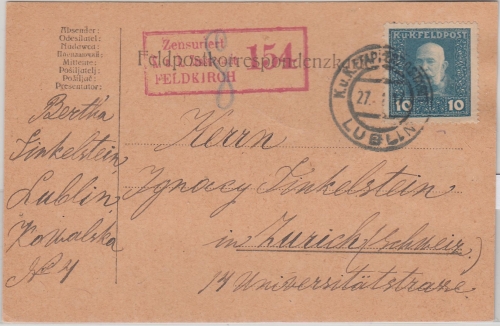 Absender:
Odesílatel:
Nadawca:
Mittente:
Pošiljatelj:
Pošiljač:
Presentator:
Feldpostkorrespondenzkarte
Zensuriert
154
FELDKIRCH
8
K.u.K. FELDPOST
10 10
K.u.K. ETAPPENPOSTAMT
27.
LUBLIN
Bertha
Finkelstein,
Lublin
Kowalska
No 4
Herrn
Ignacy Finkelstein
in Zurich (Schweiz)
14 Universitätstrasse